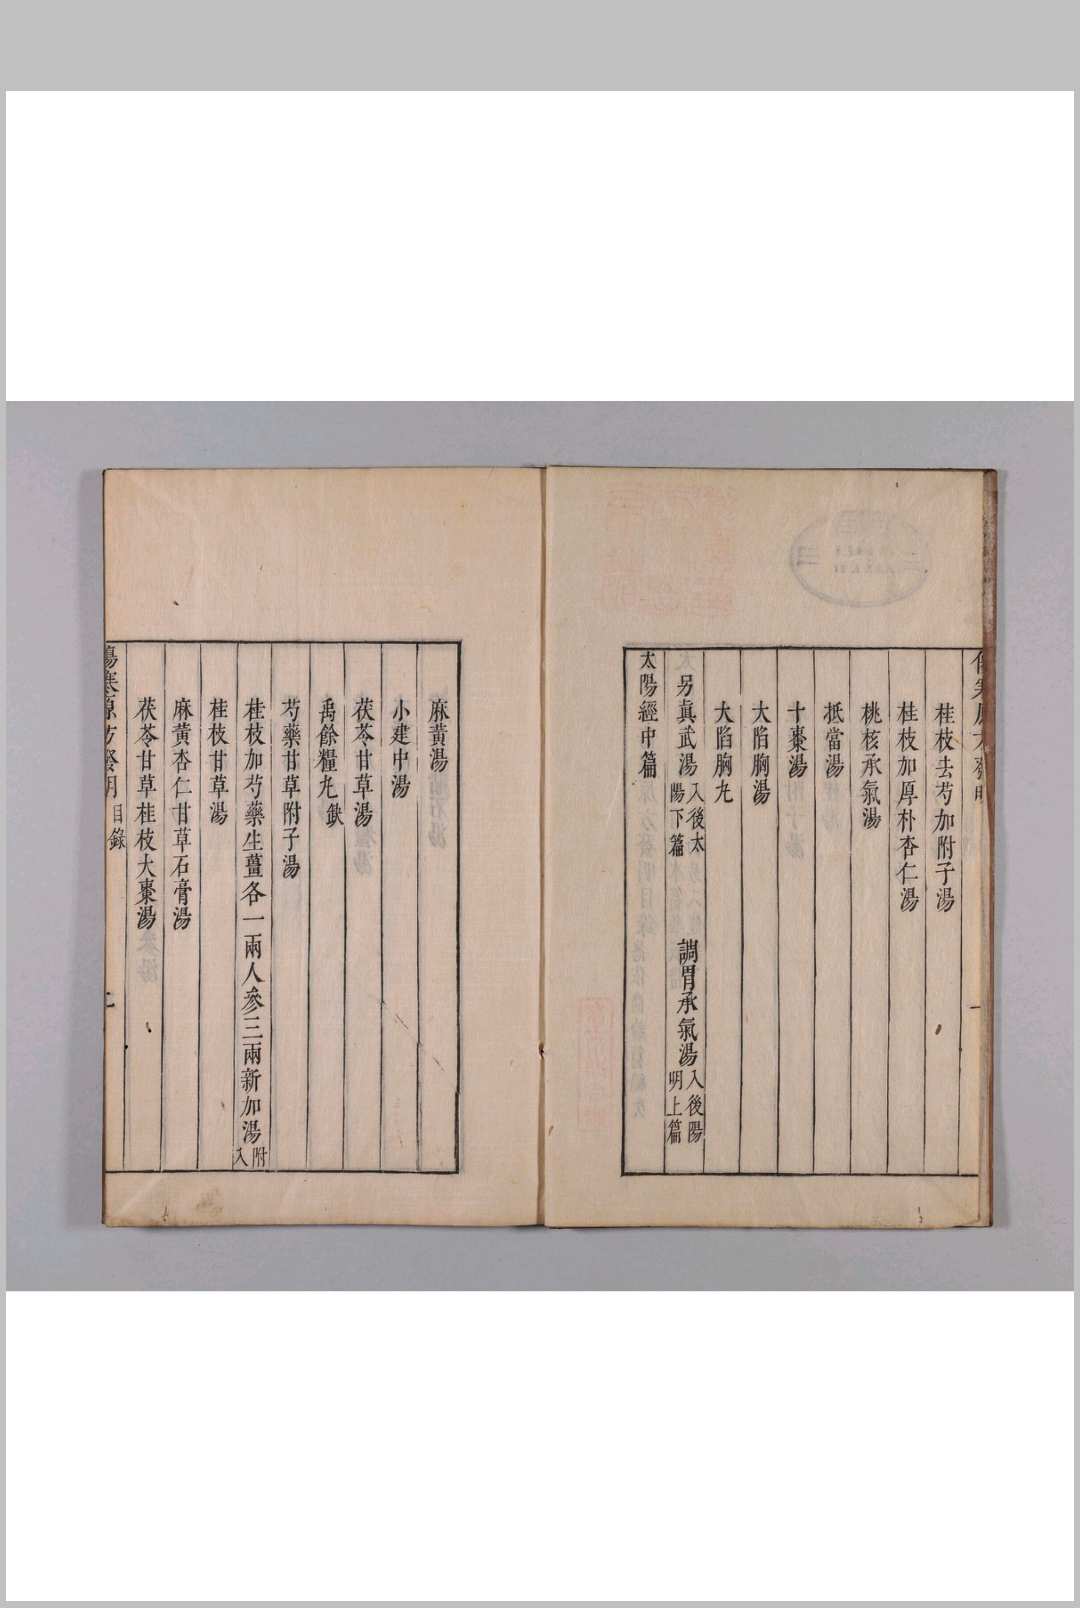 桂枝去芍加附子湯
桂枝加厚朴杏仁湯
桃核承氣湯
抵當湯
十棗湯
大陷胸湯
大陷胸丸
另真武湯 入後太陽下篇 調胃承氣湯 入後陽明上篇
太陽經中篇
麻黃湯
小建中湯
茯苓甘草湯
禹餘糧丸 缺
芍藥甘草附子湯
桂枝加芍藥生薑各一兩人參三兩新加湯 附入
桂枝甘草湯
麻黃杏仁甘草石膏湯
茯苓甘草桂枝大棗湯
傷寒源方發明 目錄